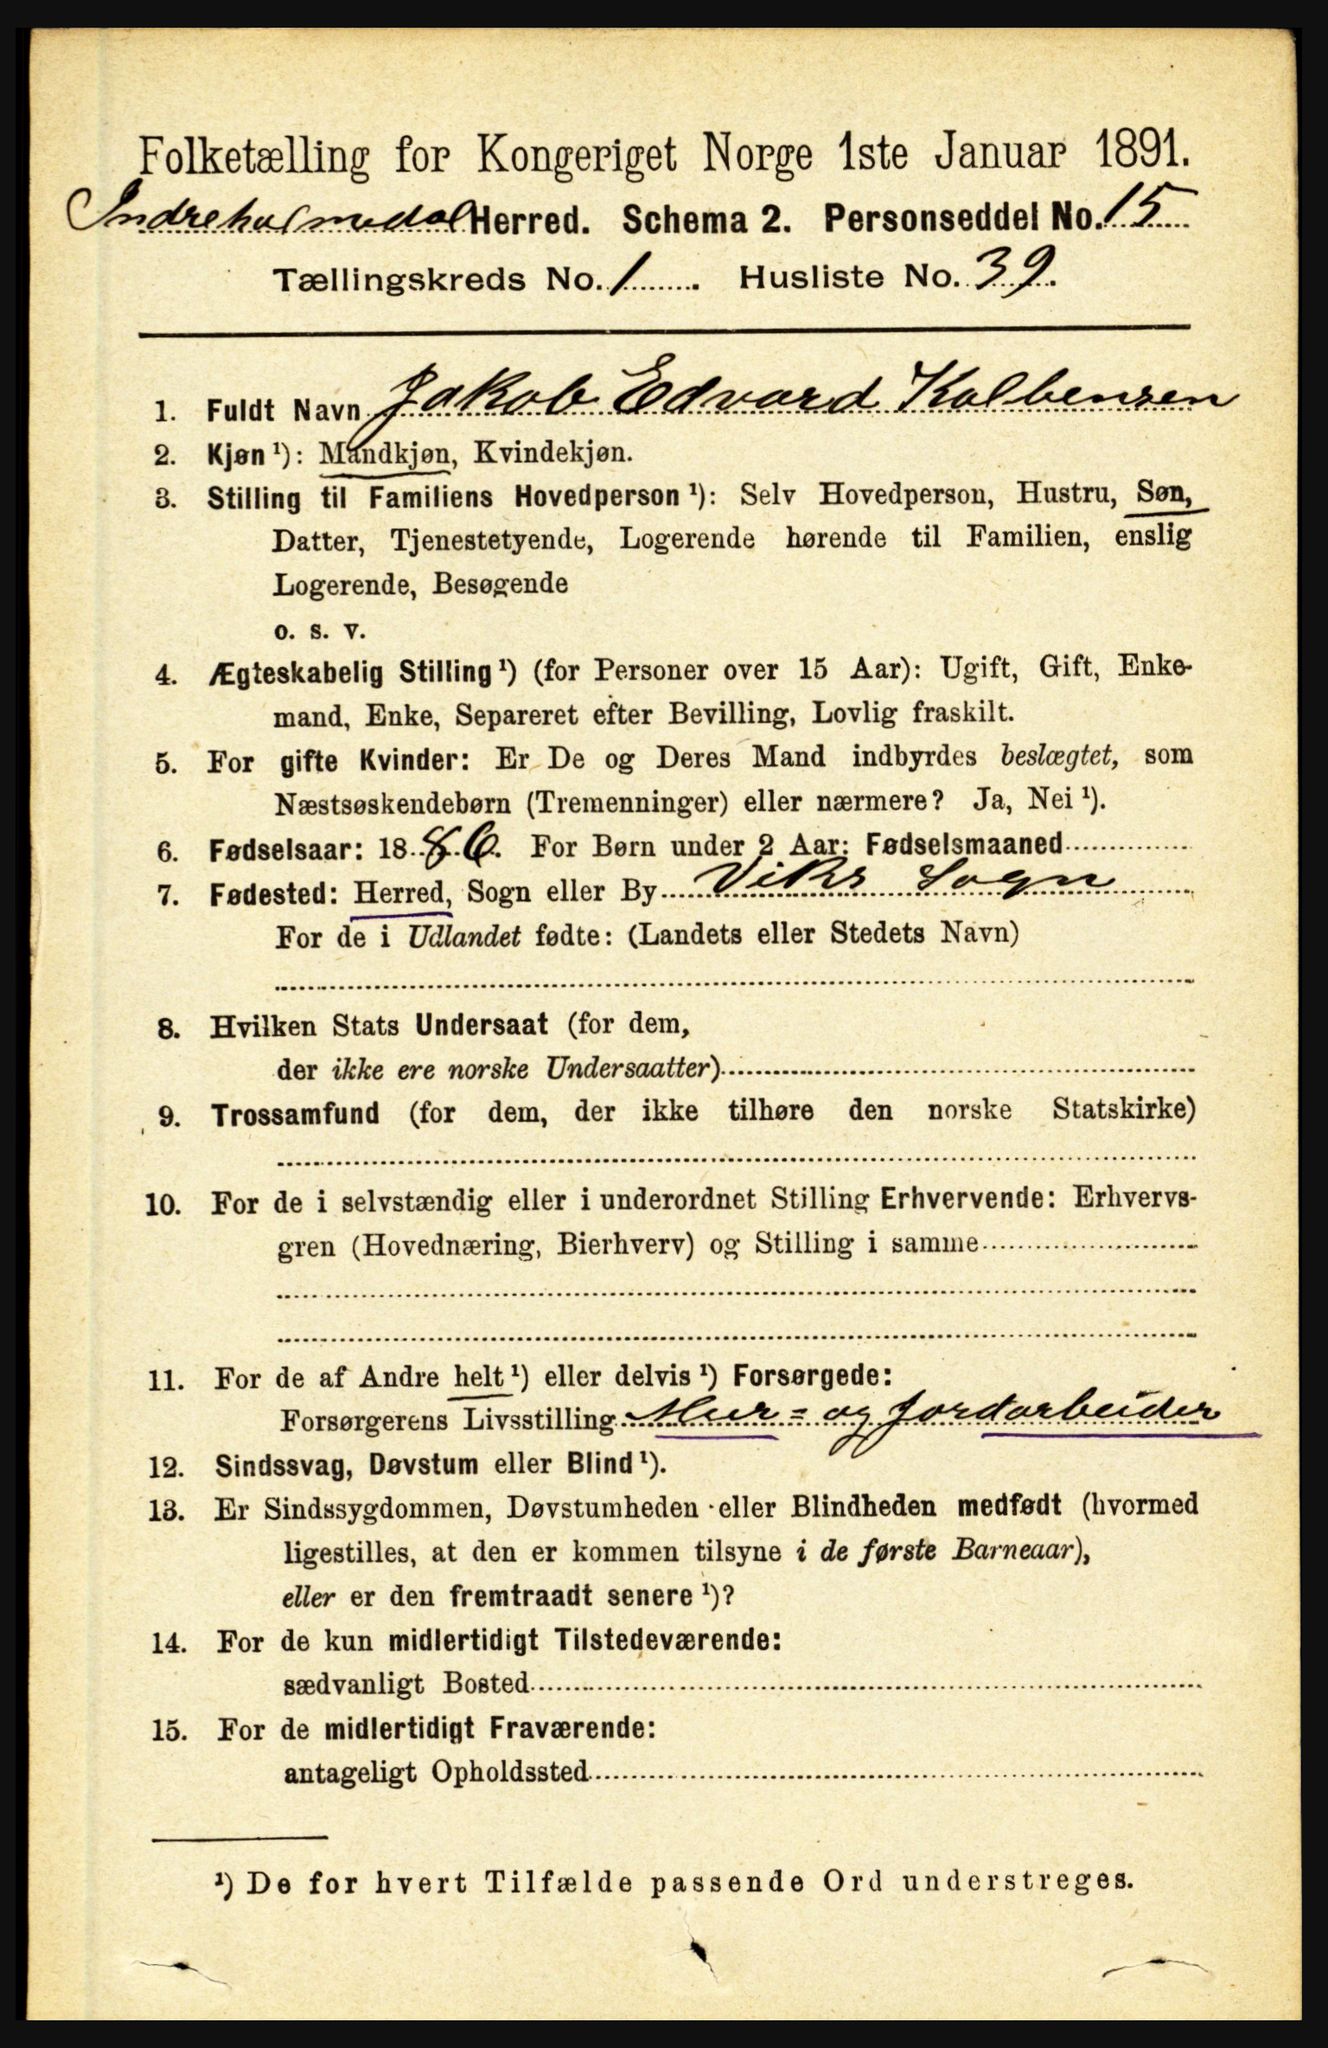 Folketælling for Kongeriget Norge 1ste Januar 1891.
Indreholmedal Herred. Schema 2. Personseddel No. 15
Tællingskreds No. 1. Husliste No. 39.
1. Fuldt Navn Jakob Edvard Kolbensen
2. Kjøn ¹): Mandkjøn, Kvindekjøn.
3. Stilling til Familiens Hovedperson ¹): Selv Hovedperson, Hustru, Søn,
Datter, Tjenestetyende, Logerende hørende til Familien, enslig
Logerende, Besøgende
o. s. v.
4. Ægteskabelig Stilling ¹) (for Personer over 15 Aar): Ugift, Gift, Enke-
mand, Enke, Separeret efter Bevilling, Lovlig fraskilt.
5. For gifte Kvinder: Er De og Deres Mand indbyrdes beslægtet, som
Næstsøskendebørn (Tremenninger) eller nærmere? Ja, Nei ¹).
6. Fødselsaar: 1886. For Børn under 2 Aar: Fødselsmaaned
7. Fødested: Herred, Sogn eller By Viks Sogn
For de i Udlandet fødte: (Landets eller Stedets Navn)
8. Hvilken Stats Undersaat (for dem,
der ikke ere norske Undersaatter)
9. Trossamfund (for dem, der ikke tilhøre den norske Statskirke)
10. For de i selvstændig eller i underordnet Stilling Erhvervende: Erhvervs-
gren (Hovednæring, Bierhverv) og Stilling i samme
11. For de af Andre helt ¹) eller delvis ¹) Forsørgede:
Forsørgerens Livsstilling Mur- og Jordarbeider
12. Sindssvag, Døvstum eller Blind ¹).
13. Er Sindssygdommen, Døvstumheden eller Blindheden medfødt (hvormed
ligestilles, at den er kommen tilsyne i de første Barneaar),
eller er den fremtraadt senere ¹)?
14. For de kun midlertidigt Tilstedeværende:
sædvanligt Bosted
15. For de midlertidigt Fraværende:
antageligt Opholdssted
¹) De for hvert Tilfælde passende Ord understreges.